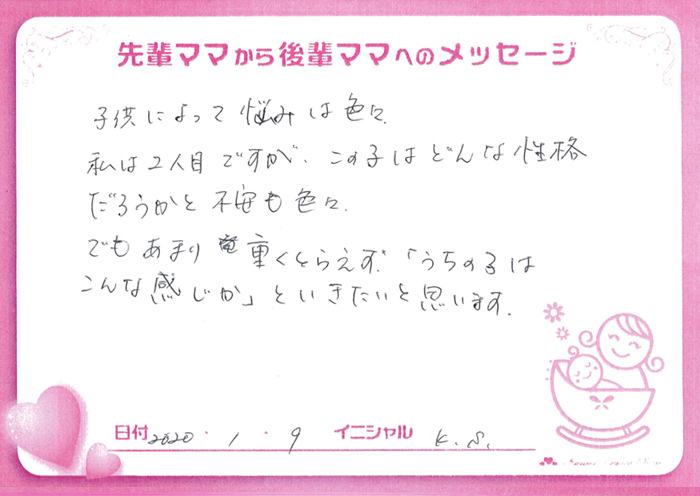 先輩ママから後輩ママへのメッセージ
子供によって悩みは色々.
私は2人目ですが、この子はどんな性格
だろうかと不安も色々.
でもあまり重くとらえず.「うちの子は
こんな感じか」といきたいと思います.
日付 2020・1・9 イニシャル K.S.